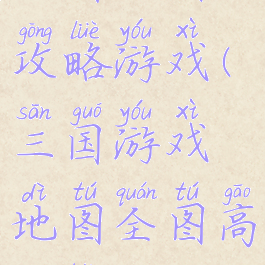 gōng lüè yóu xì
攻略游戏(
sān guó yóu xì
三国游戏
dì tú quán tú gāo
地图全图高